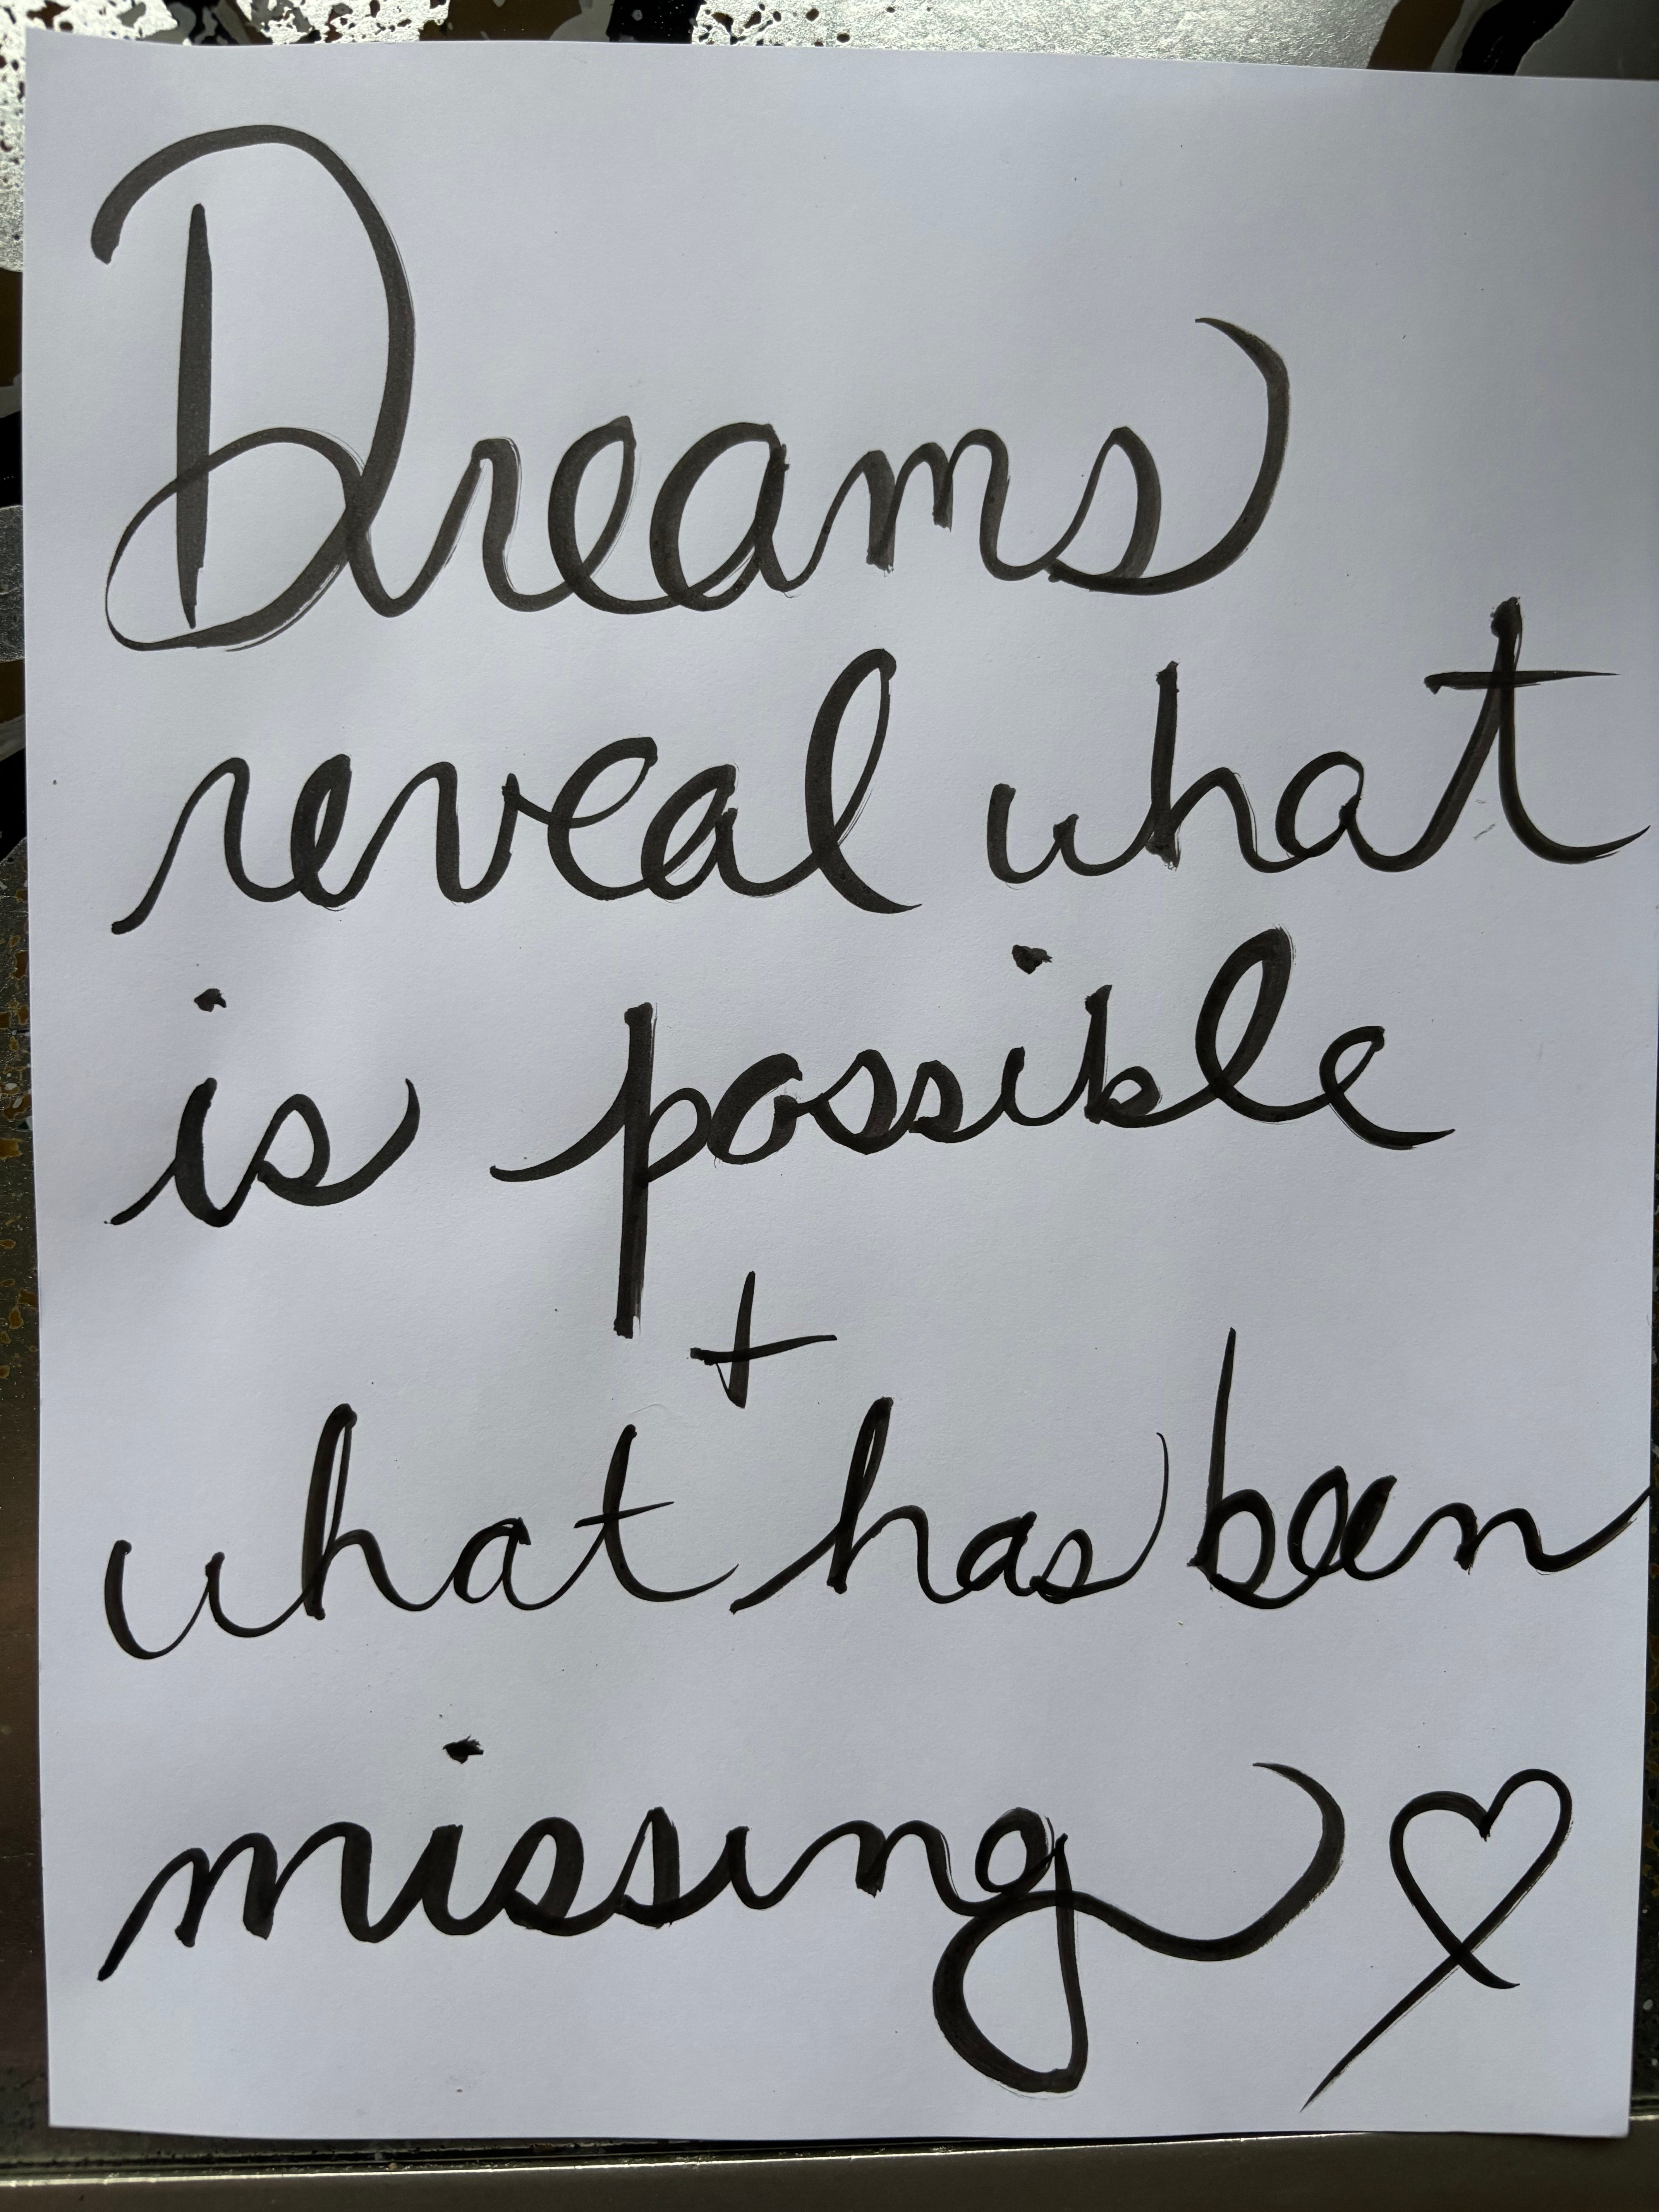 Dreams
reveal what
is possible
+
what has been
missing